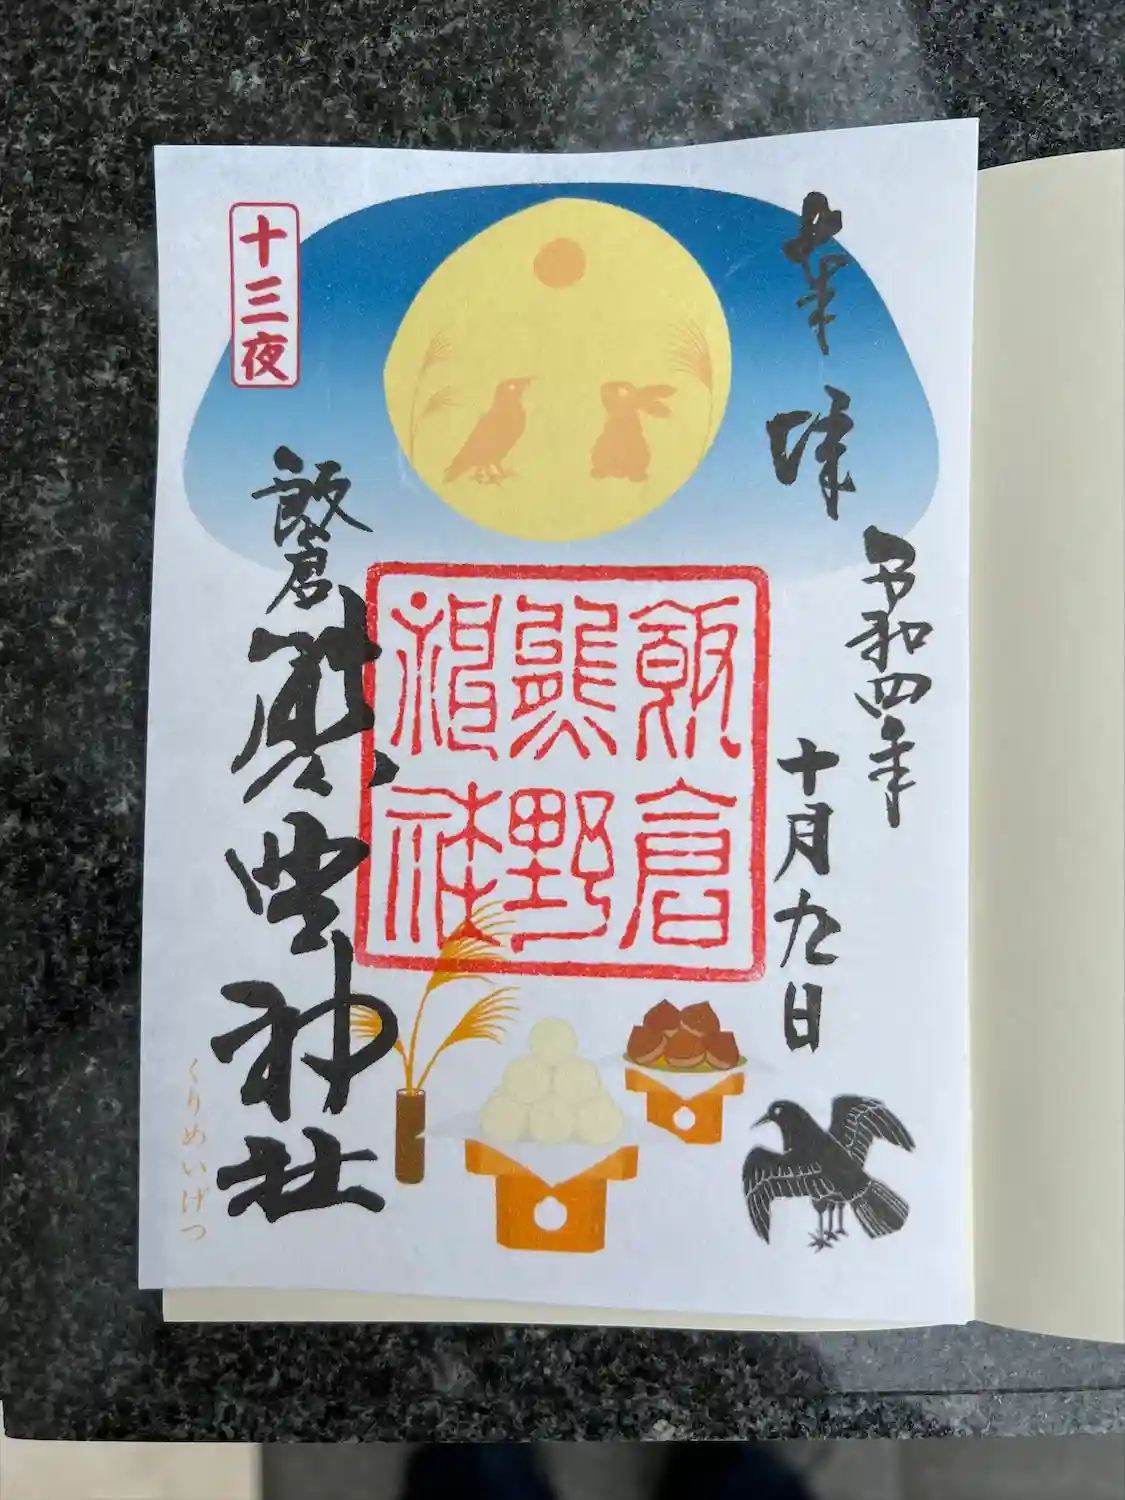 奉拝
令和四年
十月九日
飯倉
熊野
神社
飯倉
熊野神社
十三夜
くりめいげつ